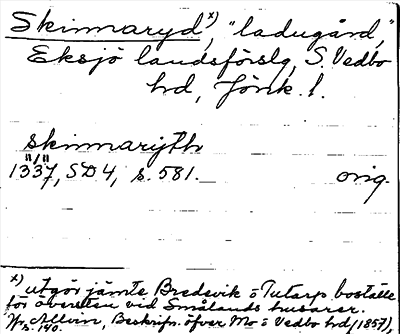 Skinnaryd,ˣ⁾ "ladugård,"
Eksjö landsförslg, S. Vedbo
hd, Jönk. l.
skinnarijth
1337, SD 4, s. 581. orig.
ˣ⁾ utgör jämte Bredevik o Tutarp boställe
för öfversten vid Smålands husarer.
Allvin, Beskrifn. öfver Mo o Vedbo hd (1857),
s. 140.